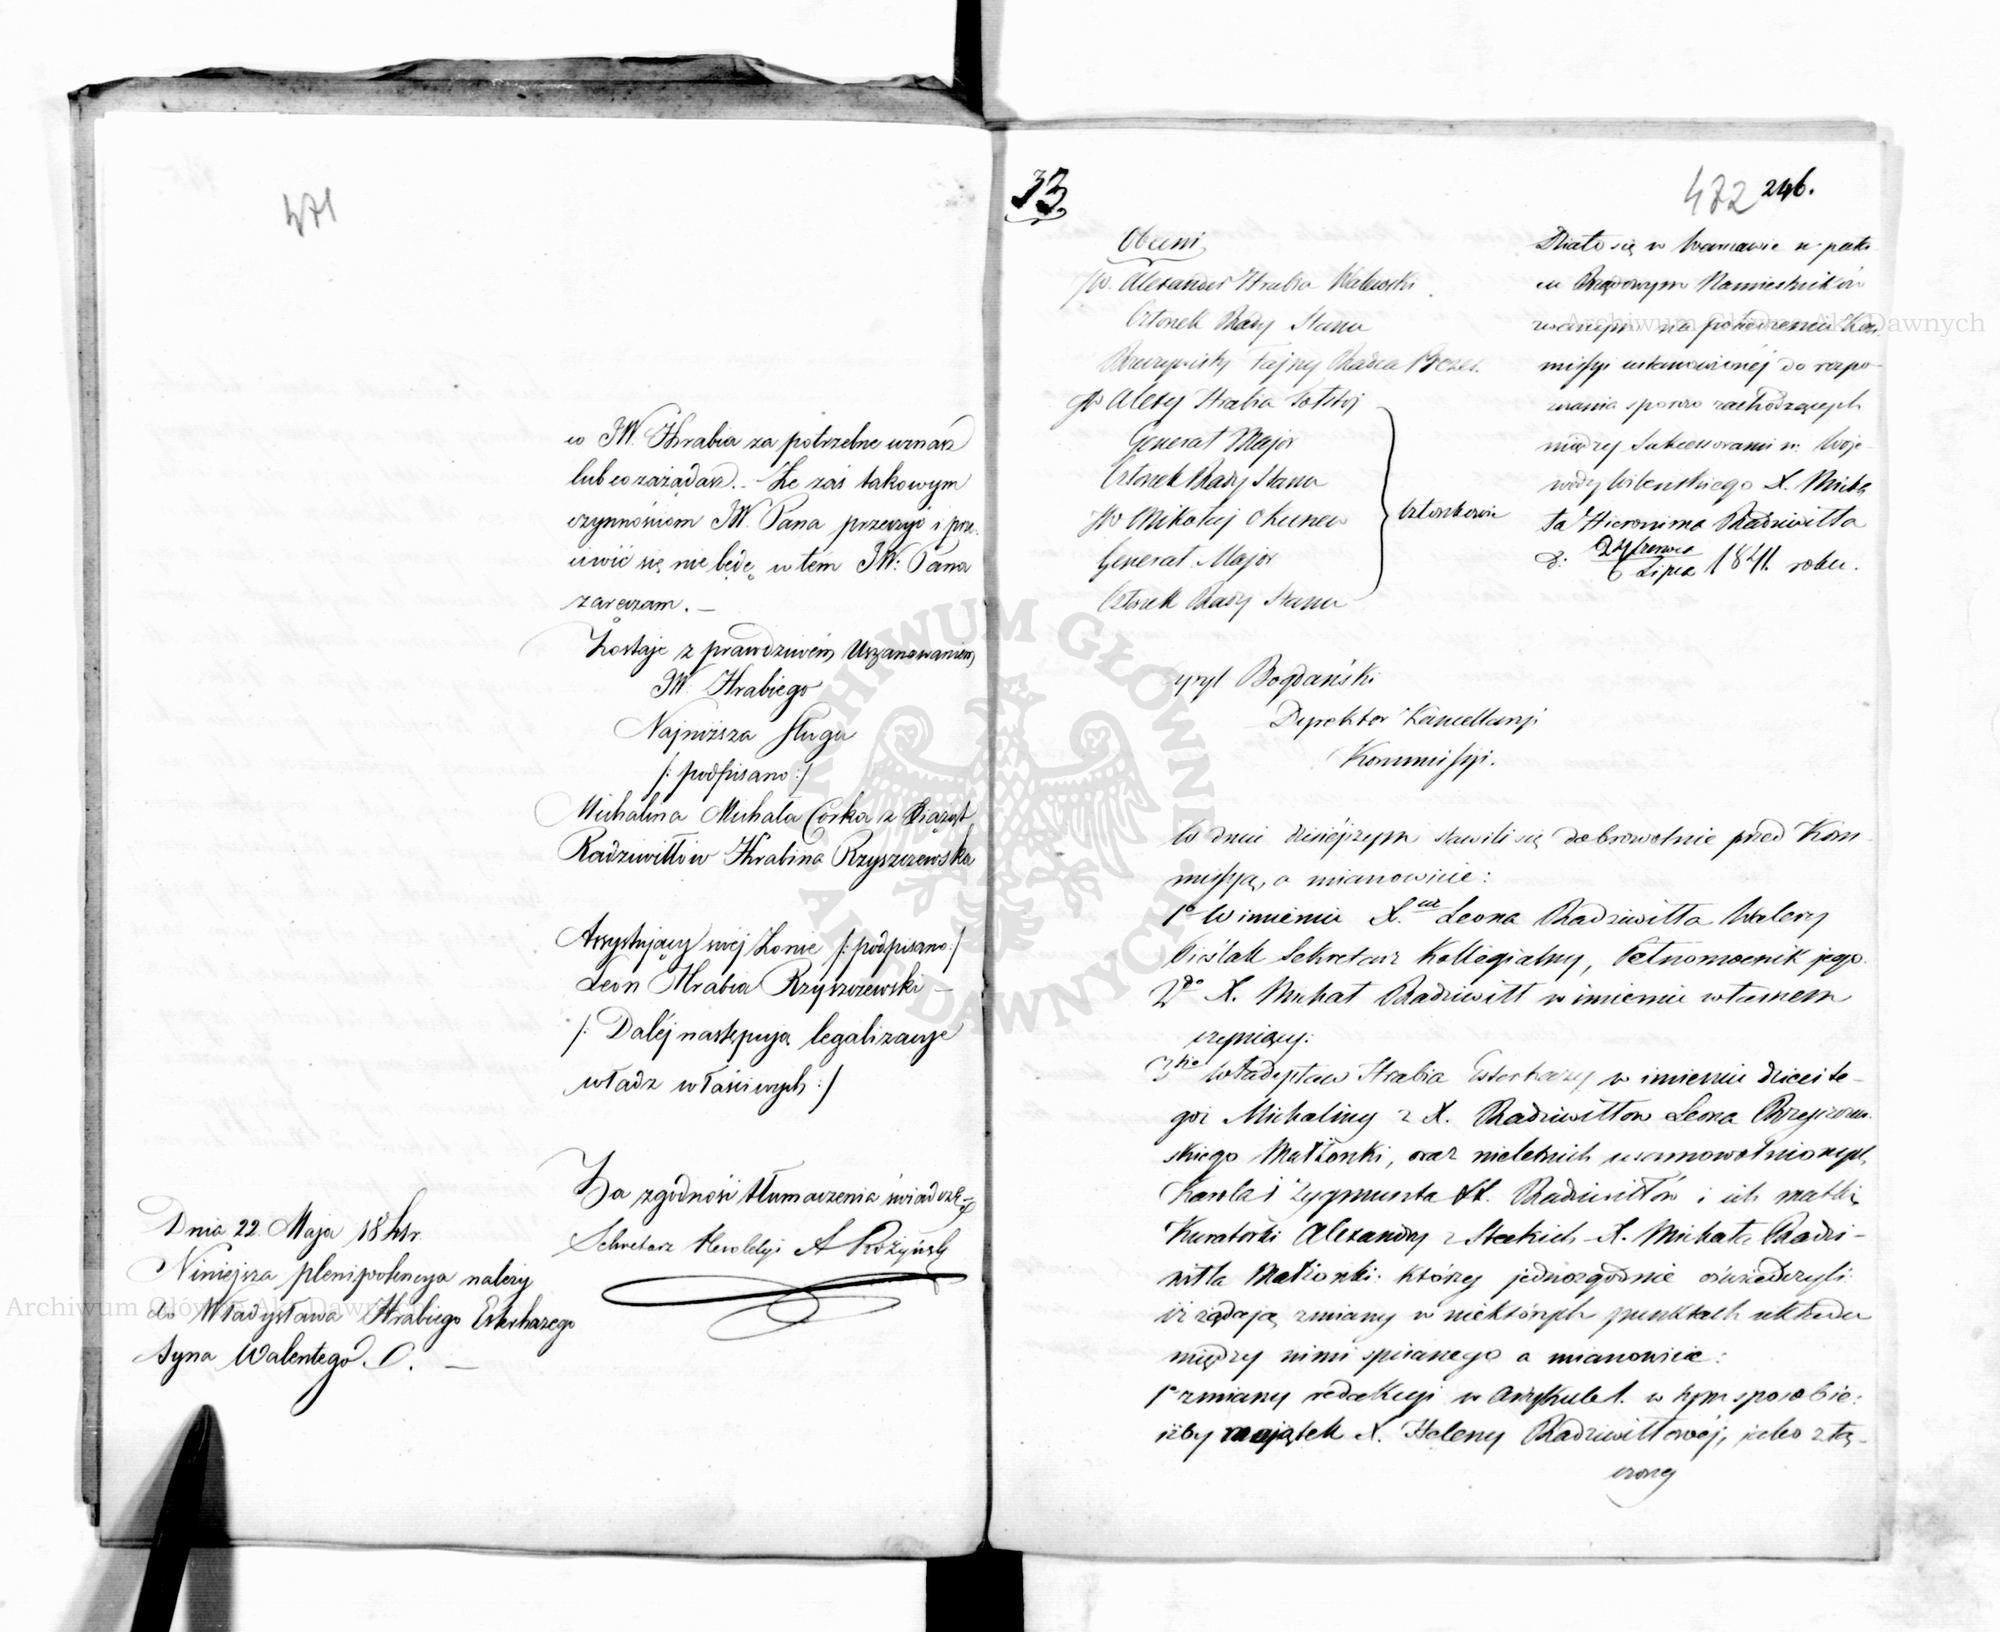 471
co JW. Hrabia za potrzebne uznasz
lub co zażądasz. – Że zaś takowym
czynnościom JW. Pana przeczyć i prze-
ciwić się nie będę, w tém JW: Pana
zaręczam. –
Zostaję z prawdziwém Uszanowaniem
JW: Hrabiego
Najniższa sługa
/: podpisano :/
Michalina Michała Córka z Xiążąt
Radziwiłłów Hrabina Rzyszczewska
Assystujący swéj Żonie /: podpisano :/
Leon Hrabia Rzyszczewski –
/: Daléj następują legalizacye
władz właściwych :/
Za zgodność tłumaczenia świadczę
Sekretarz Heroldyi A Rożyński
Dnia 22 Maja 1841r.
Niniejsza plenipotencya należy
do Władysława Hrabiego Esterhazego
Syna Walentego. –
33.
472 246.
Obecni,
JW. Alexander Hrabia Walewski
Członek Rady Stanu
Rzeczywisty Tajny Radca Prezes.
JW Alexy Hrabia Tołstoj
Generał Major
Członek Rady Stanu
JW Mikołaj Okunew
Generał Major
Członek Rady Stanu
Członkowie
Działo się w Warszawie w pała-
cu Rządowym Namiestników
zwanym na posiedzeniu Kom-
missyi ustanowionéj do rozpo-
znania sporów zachodzących
między Sukcessorami n: Woje-
wody Wileńskiego X. Micha
ła Hieronima Radziwiłła
d: 24 Czerwca / 6 Lipca 1841. roku.
Cyryl Bogdański
Dyrektor Kancellaryi
Kommissyi.
W dniu dzisiejszym stawili się dobrowolnie przed Kom-
missyą, a mianowicie:
1o W imieniu X.cia Leona Radziwiłła Walery
Cieślak Sekretarz Kollegialny, Pełnomocnik jego.
2do X. Michał Radziwiłł w imieniu własnem
czyniący:
3tio Władysław Hrabia Esterhazy w imieniu dzieci te-
goż Michaliny z X. Radziwiłłow Leona Rzyszczew-
skiego Małżonki, oraz nieletnich usamowolnionych
Karola i Zygmunta XX. Radziwiłłów i ich matki
Kuratorki Alexandry z Steckich X. Michała Radzi-
wiłła Małżonki: którzy jednozgodnie oświadczyli
iż żądają zmiany w niektórych punktach układu
między nimi spisanego a mianowicie:
1o zmiany redakcyi w Artykule 1. w tym sposobie:
iżby majątek X. Heleny Radziwiłłowéj, jako złą-
czony